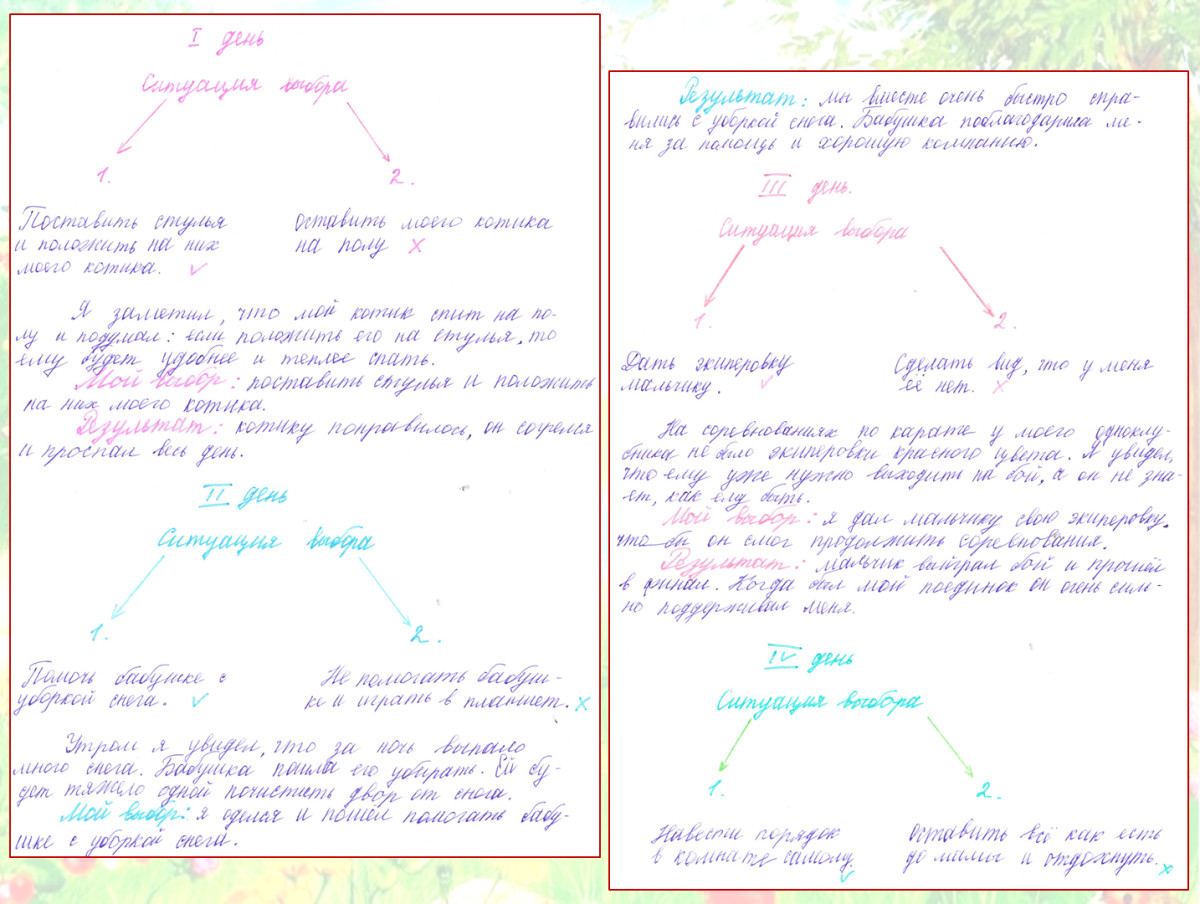 I день
Ситуация выбора
1. 2.
Поставить стулья
и положить на них
моего котика. ✓
оставить моего котика
на полу ✗
Я заметил, что мой котик спит на по-
лу и подумал: если положить его на стулья, то
ему будет удобнее и теплее спать.
Мой выбор: поставить стулья и положить
на них моего котика.
Результат: котику понравилось, он согрелся
и проспал весь день.
II день
Ситуация выбора
1. 2.
Помочь бабушке с
уборкой снега. ✓
Не помогать бабуш-
ке и играть в планшет. ✗
Утром я увидел, что за ночь выпало
много снега. Бабушка пошла его убирать. Ей бу-
дет тяжело одной почистить двор от снега.
Мой выбор: я оделся и пошёл помогать бабу-
шке с уборкой снега.
Результат: мы вместе очень быстро спра-
вились с уборкой снега. Бабушка поблагодарила ме-
ня за помощь и хорошую компанию.
III день.
Ситуация выбора
1. 2.
Дать экиперовку
мальчику. ✓
Сделать вид, что у меня
её нет. ✗
На соревнованиях по карате у моего одноклу-
бника не было экиперовки красного цвета. Я увидел,
что ему уже нужно выходить на бой, а он не зна-
ет, как ему быть.
Мой выбор: я дал мальчику свою экиперовку,
что бы он смог продолжить соревнования.
Результат: мальчик выйграл бой и прошёл
в финал. Когда был мой поединок он очень силь-
но поддерживал меня.
IV день
Ситуация выбора
1. 2.
Навести порядок
в комнате самому. ✓
оставить всё как есть
до мамы и отдохнуть. ✗